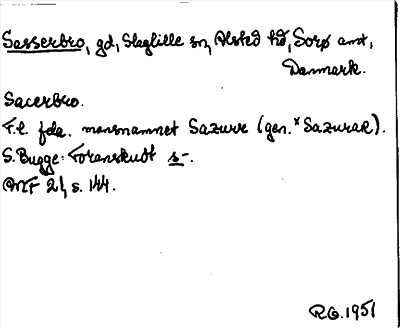 Sasserbro, gd, Slaglille sn, Alsted hd, Sorø amt,
Danmark.
Sacerbro.
F.l. fda. mansnamnet Sazurr (gen. *Sazurar).
S. Bugge: Foranskudt s-.
ANF 21, s. 144.
RG. 1951